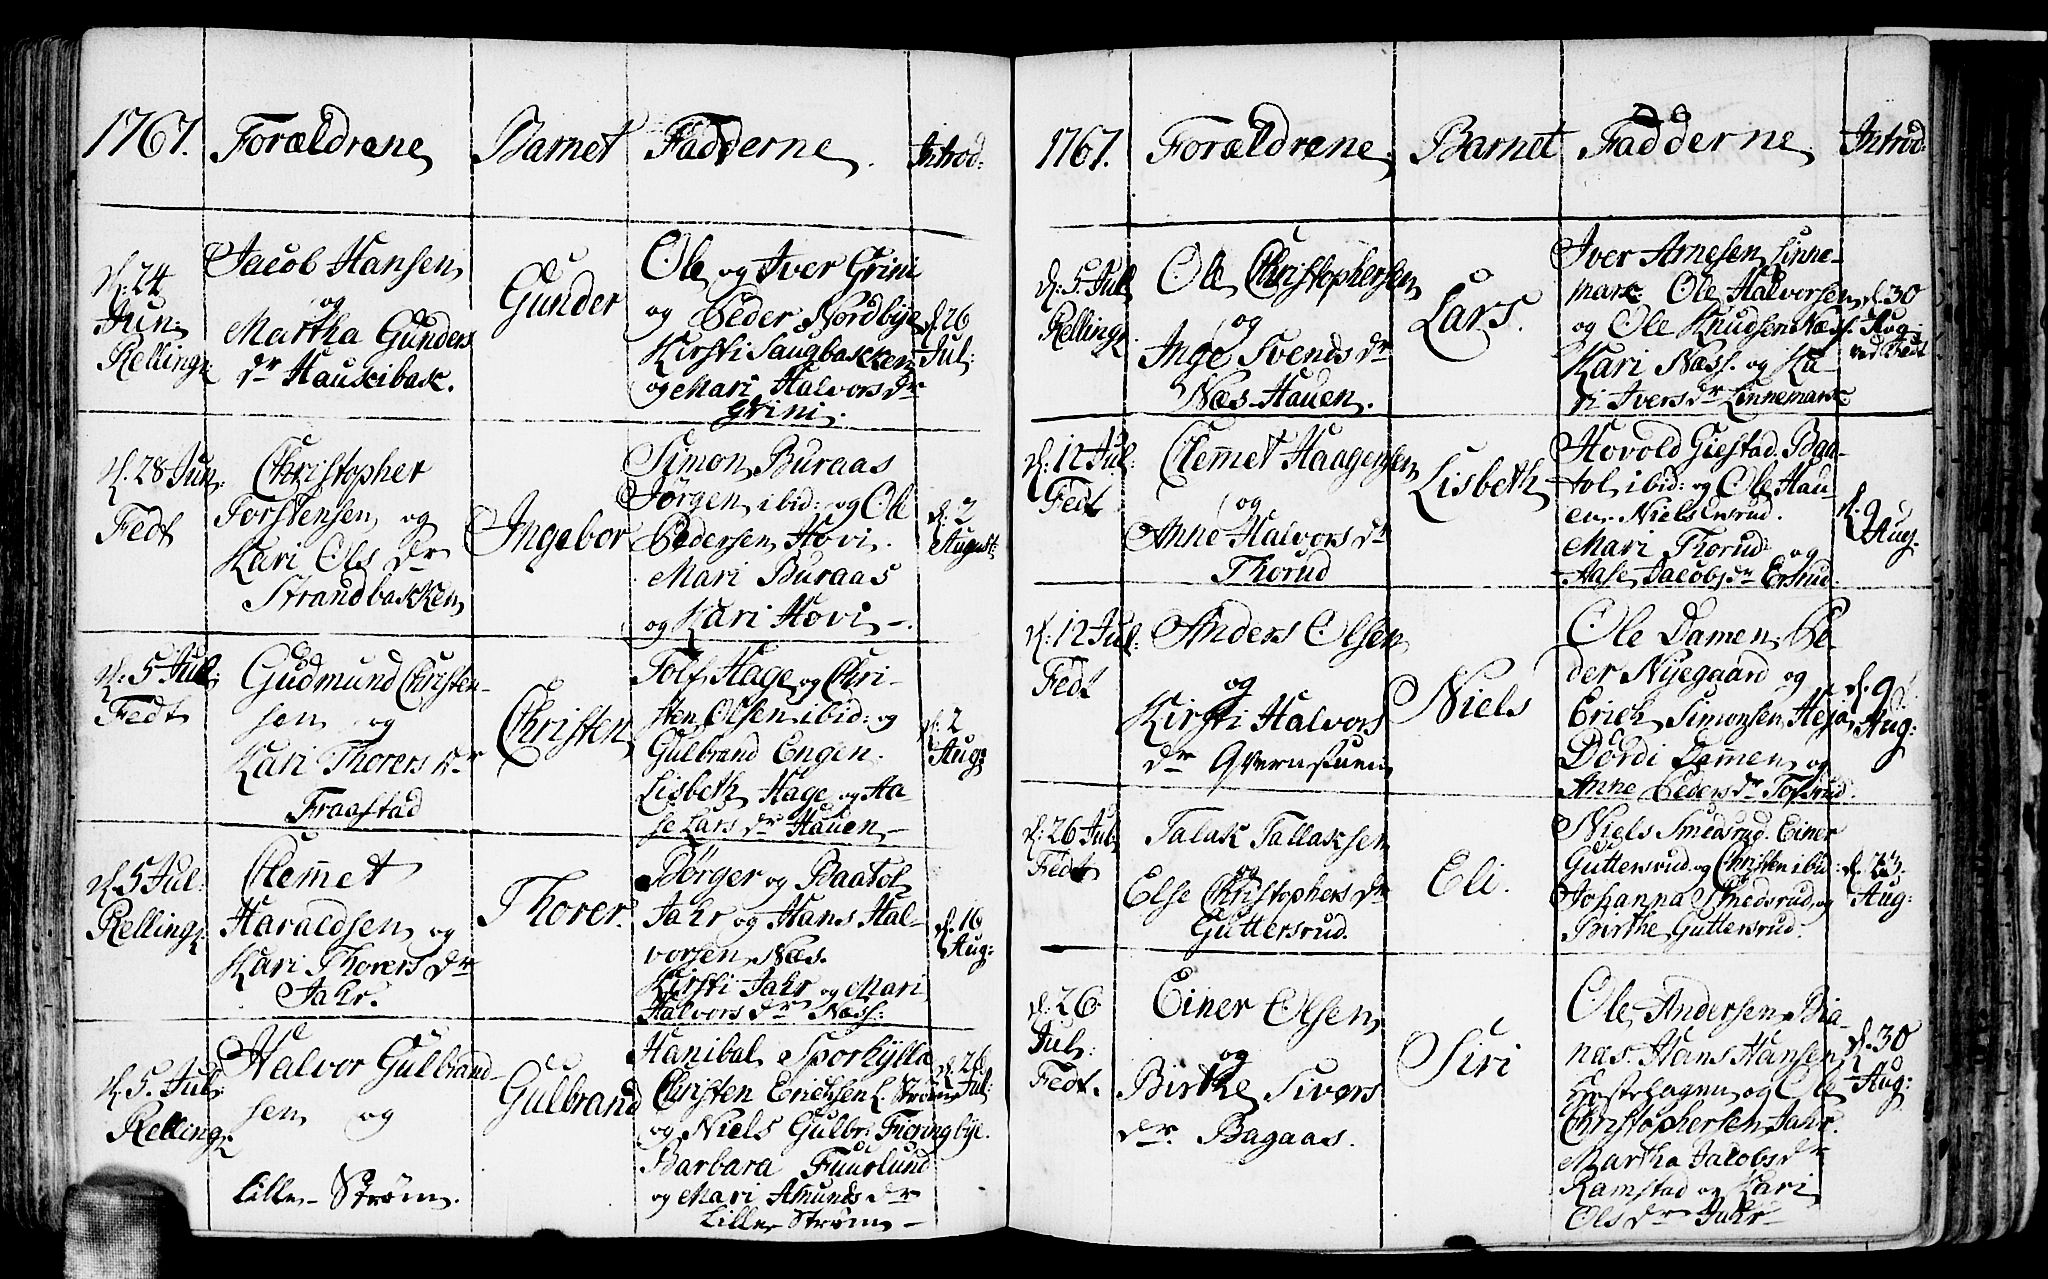 1767. Forældrene Barnet Fadderne. Introd:
d: 24
Jun:
Relling:
Jacob Hansen
og
Martha Gunders
dr Hauk
Gunder
Ole og Iver Grini
og Peder Nordbye
Kirsti Haugbakken
og Mari Halvors dr
Grini.
d. 26
Jul:
d. 28 Jun:
Fedt
Christopher
Torstensen og
Kari Ols dr
Strandbakken
Ingebor
Simon Buraas
Jørgen ibid: og Ole
Pedersen Hovi.
Mari Buraas
og Kari Hovi -.
d: 2
August:
d: 5 Jul:
Fedt
Gudmund Christen-
sen og
Kari Thorers dr
Fraastad
Christen
Tolf Hage og Chri-
sten Olsen ibid: og
Gulbrand Engen.
Lisbeth Hage og Aa-
se Lars dr Hauen -
d. 2
Aug:
d. 5 Jul:
Relling:
Clem̅et
Haraldsen og
Kari Thorers dr
Jahr.
Thorer.
Børger og Baatol
Jahr og Hans Hal-
vorsen Næs.
Kirsti Jahr og Mari
Halvors dr Næss:
d. 16
Aug:
d. 5. Jul:
Relling:
Halvor Gulbrand-
sen og
Lille - Strøm.
Gulbrand
Hanibal Sporkylla
Christen Erichsen L. Strøm
og Niels Gulbr: Fieringbye.
Barbara Fuurlund
og Mari Amunds dr
Lille Strøm -
d. 26
Jul:
1767. Forældrene Barnet Fadderne Introd:
d. 5. Jul
Relling:
Ole Christophersen
og
Inge Svends dr
Næs-Hauen.
Lars.
Iver Arnesen Linne-
mark: Ole Halvorsen
og Ole Knudsen Næss.
Kari Næss. og Ka-
ri Ivers dr Linnemark
d. 30
Aug:
ved Fedt
d: 12 Jul:
Fedt
Clem̅et Haagensen
og
Anne Halvors dr
Thorud
Lisbeth
Hovold Giestad. Baa-
tol ibid: og Ole Hau-
en. Niels Ersrud.
Mari Thorud og
Aase Jacobs dr Ersrud.
d. 9
Aug:
d: 12 Jul:
Fedt
Anders Olsen
og
Kirsti Halvors
dr Qvernstuen
Niels
Ole Damen. Pe-
der Nyegaard og
Erich Simonsen Heja
Dordi Damen og
Anne Peders dr Tofsrud.
d. 9
Aug:
d: 26 Jul:
Fedt
Talak Tallaksen
og
Else Christophers dr
Guttersrud.
Eli.
Niels Smedsrud. Einer
Guttersrud og Christen ibid:
Johanna Smedsrud og
Birthe Guttersrud.
d. 23.
Aug:
d: 26
Jul:
Fedt.
Einer Olsen
og
Birthe Sivers
dr. Bagaas.
Siri
Ole Andersen Bia-
næs. Hans Hansen
Hestehagen og Ole
Christophersen Jahr.
Martha Jacobs dr
Ramstad og Kari
Ols dr Jahr -
d. 30
Aug: